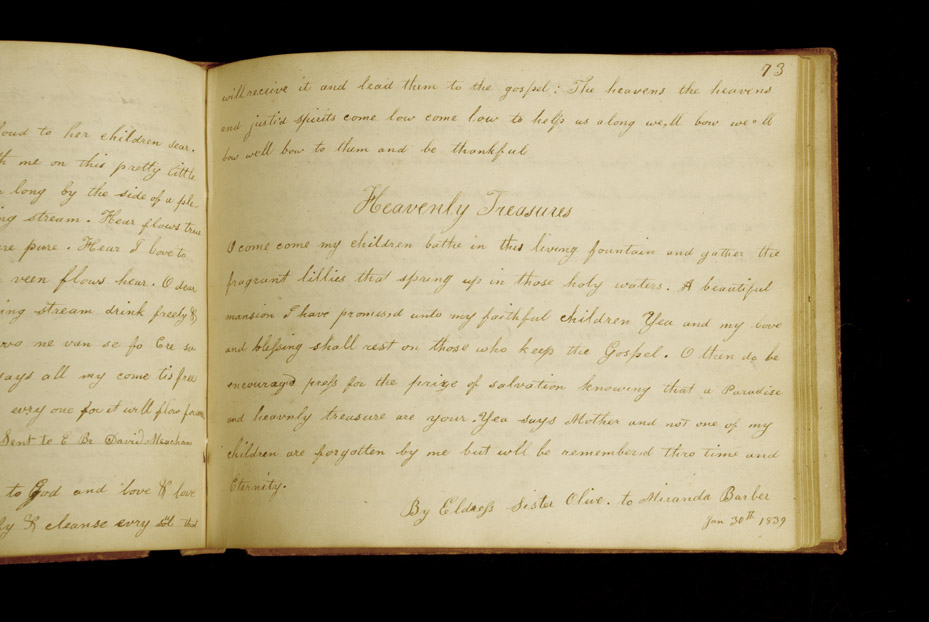 loud to her children sear.
me on this pretty little
long by the side of a ple
ng stream. Hear flows true
re pure. Hear I love to
veen flows hear. O dear
ing stream drink freely &
vo ne van se fo Ere so
says all my come tis free
evry one for it will flow from
Sent to E Br David Meacham
to God and love & love
ly & cleanse evry sole that
73
will receive it and lead them to the gospel: The heavens the heavens
and justi'd spirits come low come low to help us along we,ll bow we,ll
bow we'll bow to them and be thankful
Heavenly Treasures
O come come my children bathe in this living fountain and gather the
fragrant lillies that spring up in those holy waters. A beautiful
mansion I have promis'd unto my faithful children Yea and my love
and blessing shall rest on those who keep the Gospel. O then do be
encourag'd press for the prize of salvation knowing that a Paradise
and heavnly treasure are your. Yea says Mother and not one of my
children are forgotten by me but will be remembered thro time and
Eternity.
By Eldress Sister Olive. to Miranda Barber
Jan 30th 1839